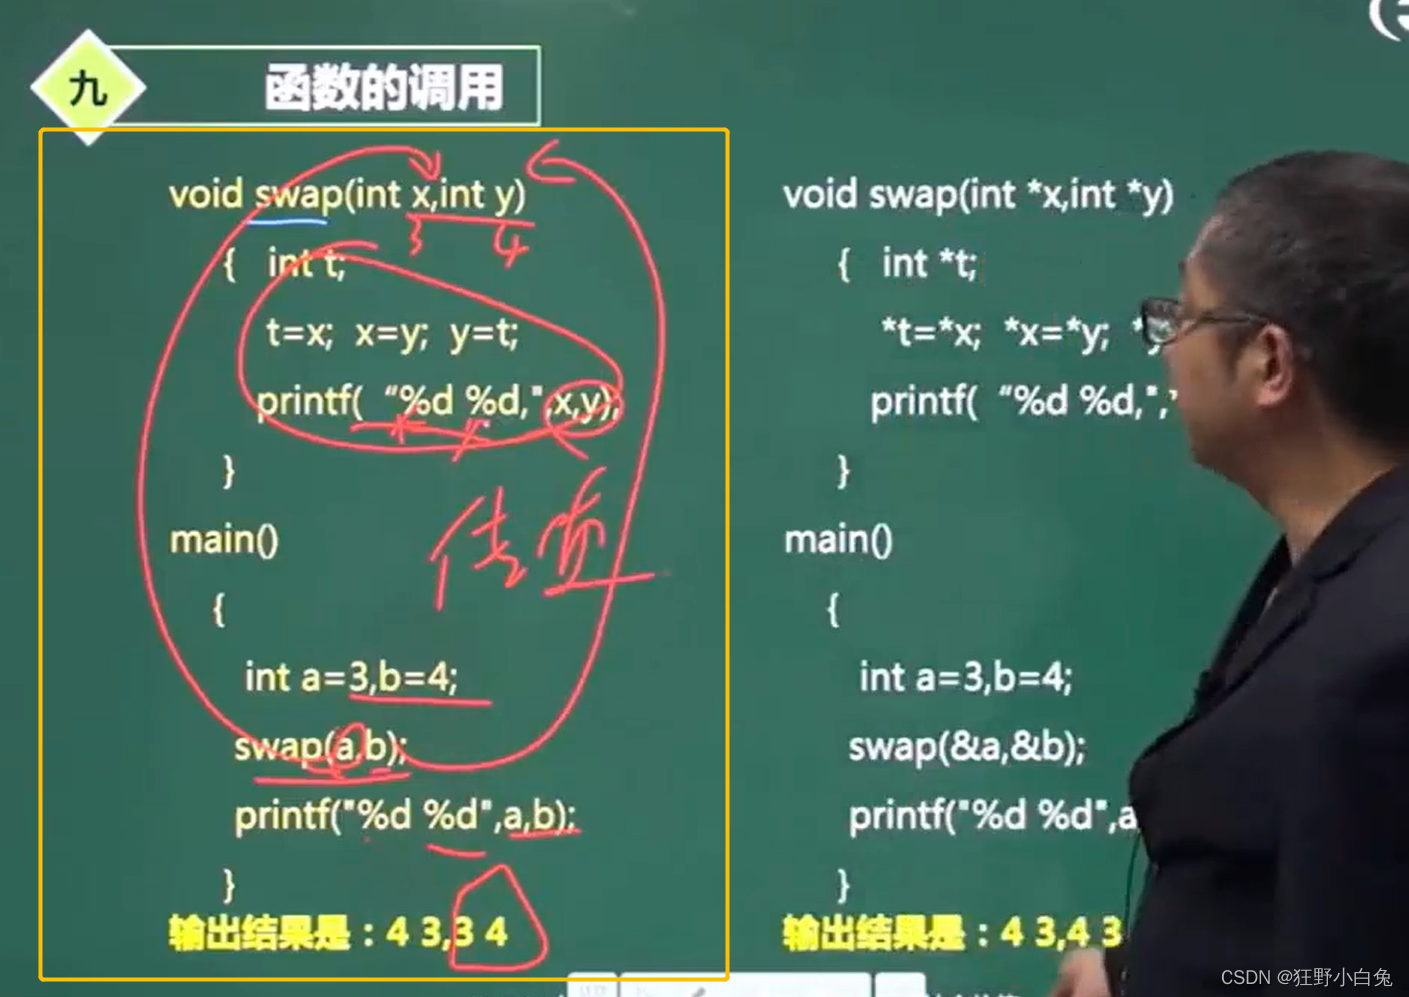 九
函数的调用
void swap(int x,int y)
3 4
{ int t;
t=x; x=y; y=t;
printf( “%d %d,",x,y);
}
传值
main()
{
int a=3,b=4;
swap(a,b);
printf("%d %d",a,b);
}
输出结果是：4 3,3 4
void swap(int *x,int *y)
{ int *t;
*t=*x; *x=*y;
printf( “%d %d,",
}
main()
{
int a=3,b=4;
swap(&a,&b);
printf("%d %d",a
}
输出结果是：4 3,4 3
CSDN @狂野小白兔